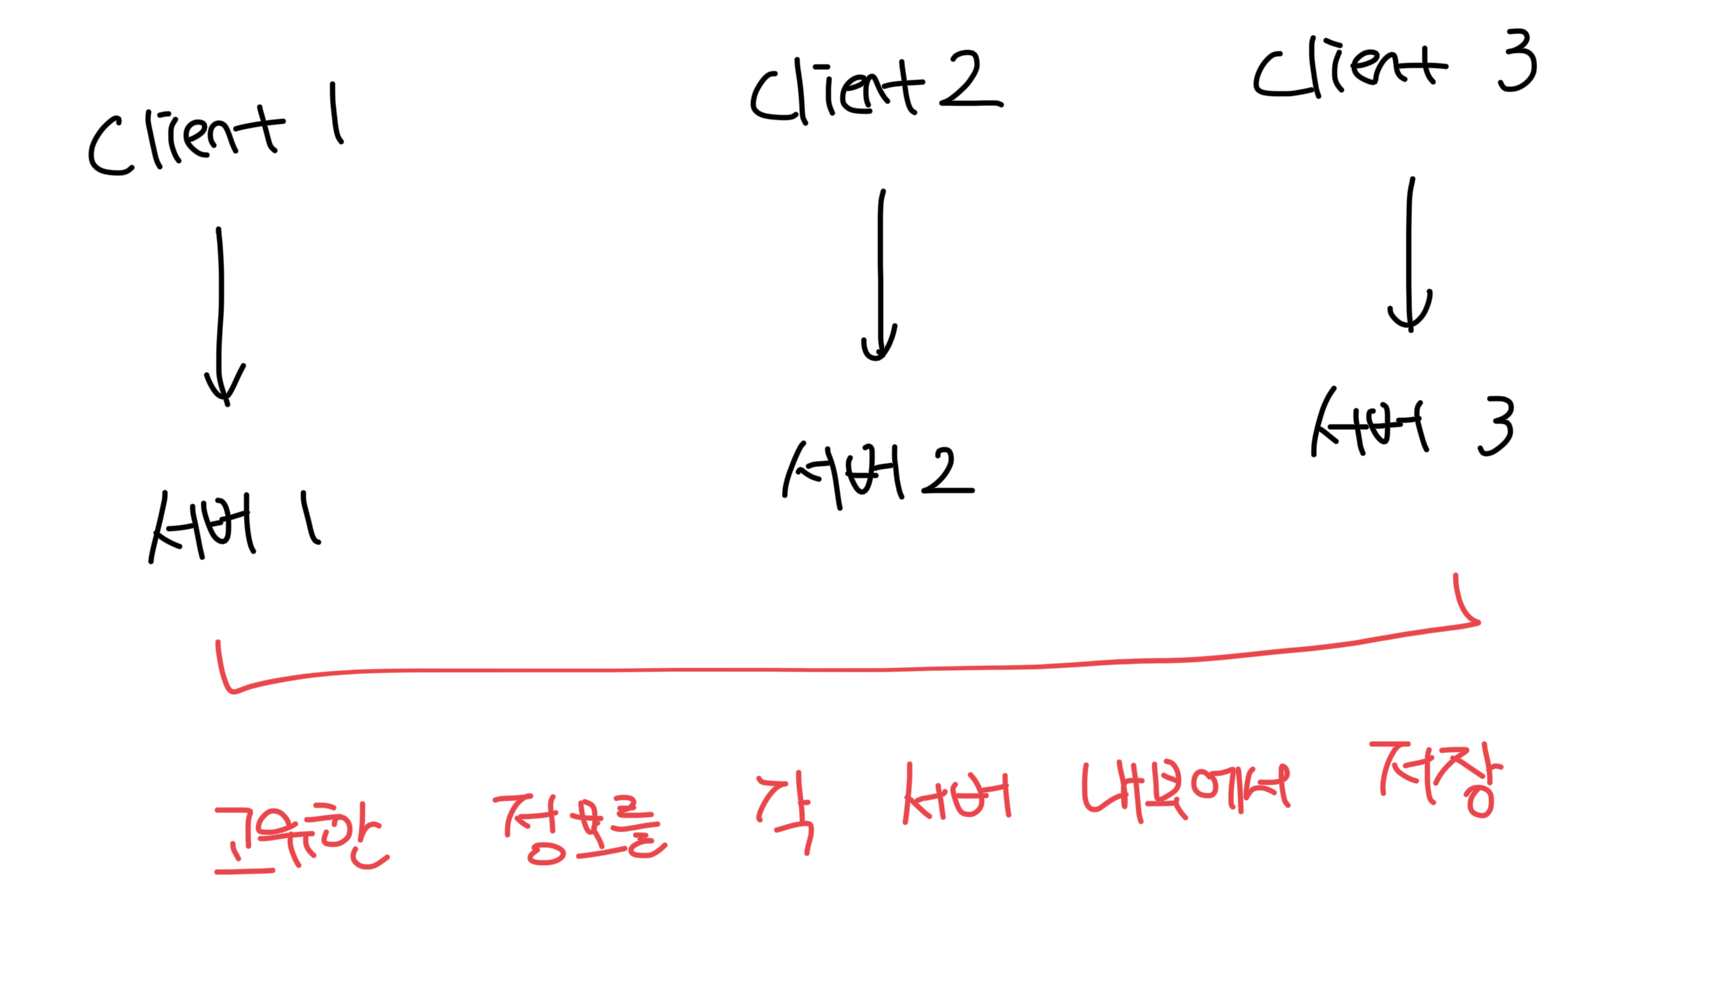 Client 1
Client 2
Client 3
서버 1
서버 2
서버 3
고유한 정보를 각 서버 내부에서 저장